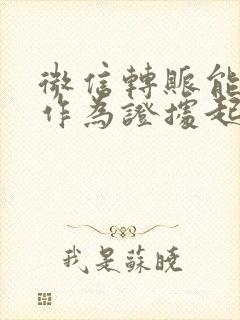 微信轉賬能
作為證據起
我是蘇曉